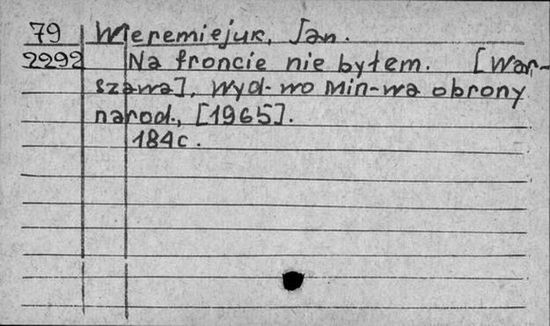 79 Weremiejuk, Jan.
2292 Na froncie nie byłem. [War-
szawa], Wyd-wo Min-wa obrony
narod., [1965].
184c.